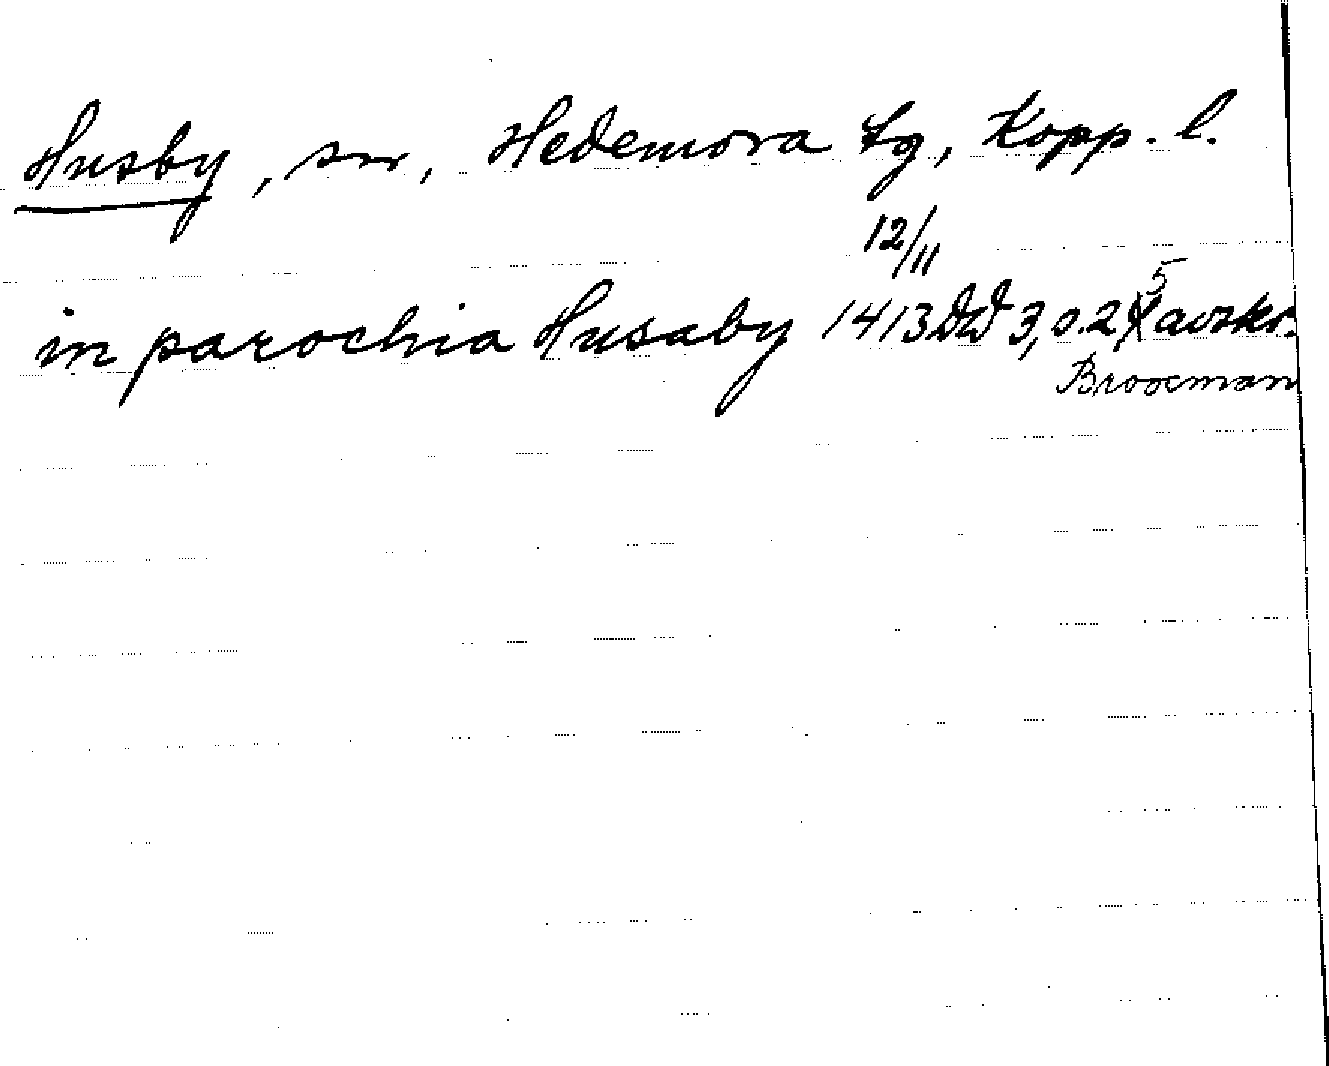 Husby, sn, Hedemora tg, Kopp. l.
12/11
in parochia Husaby 1413 DD 3, s. 25 avskr.
Broocman